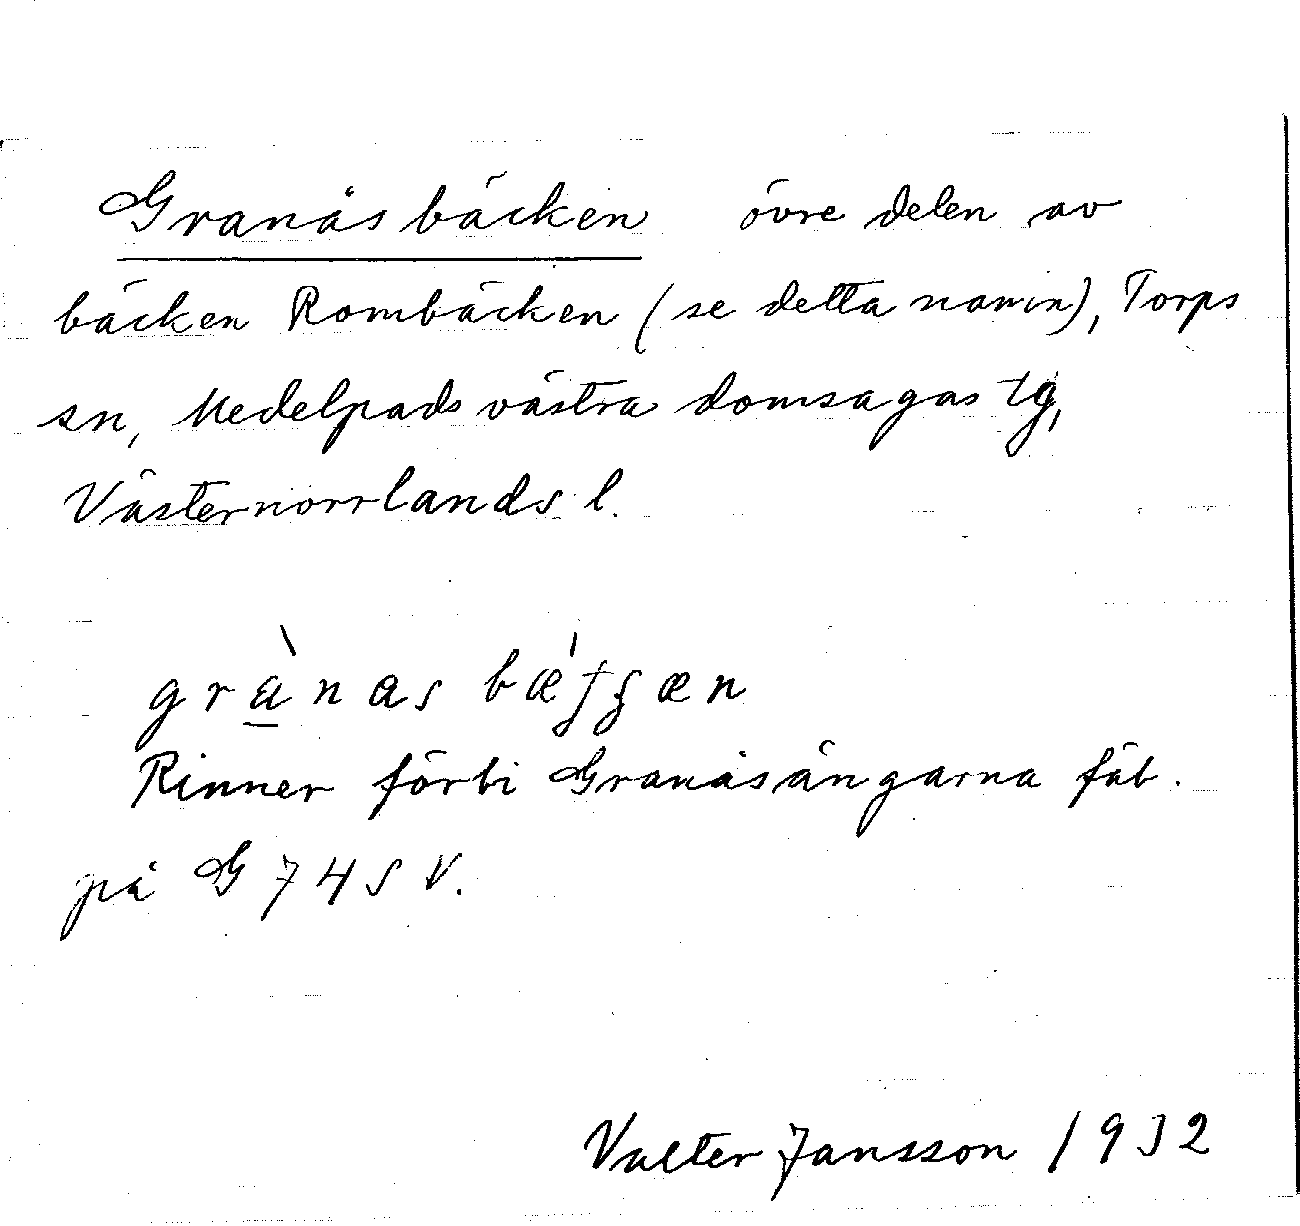 Granåsbäcken övre delen av
bäcken Rombäcken (se detta namn), Torps
sn, Medelpads västra domsagas tg,
Västernorrlands l.
grànas bǽ
Rinner förbi Granåsängarna fäb.
på G 74 S V.
Valter Jansson 1932